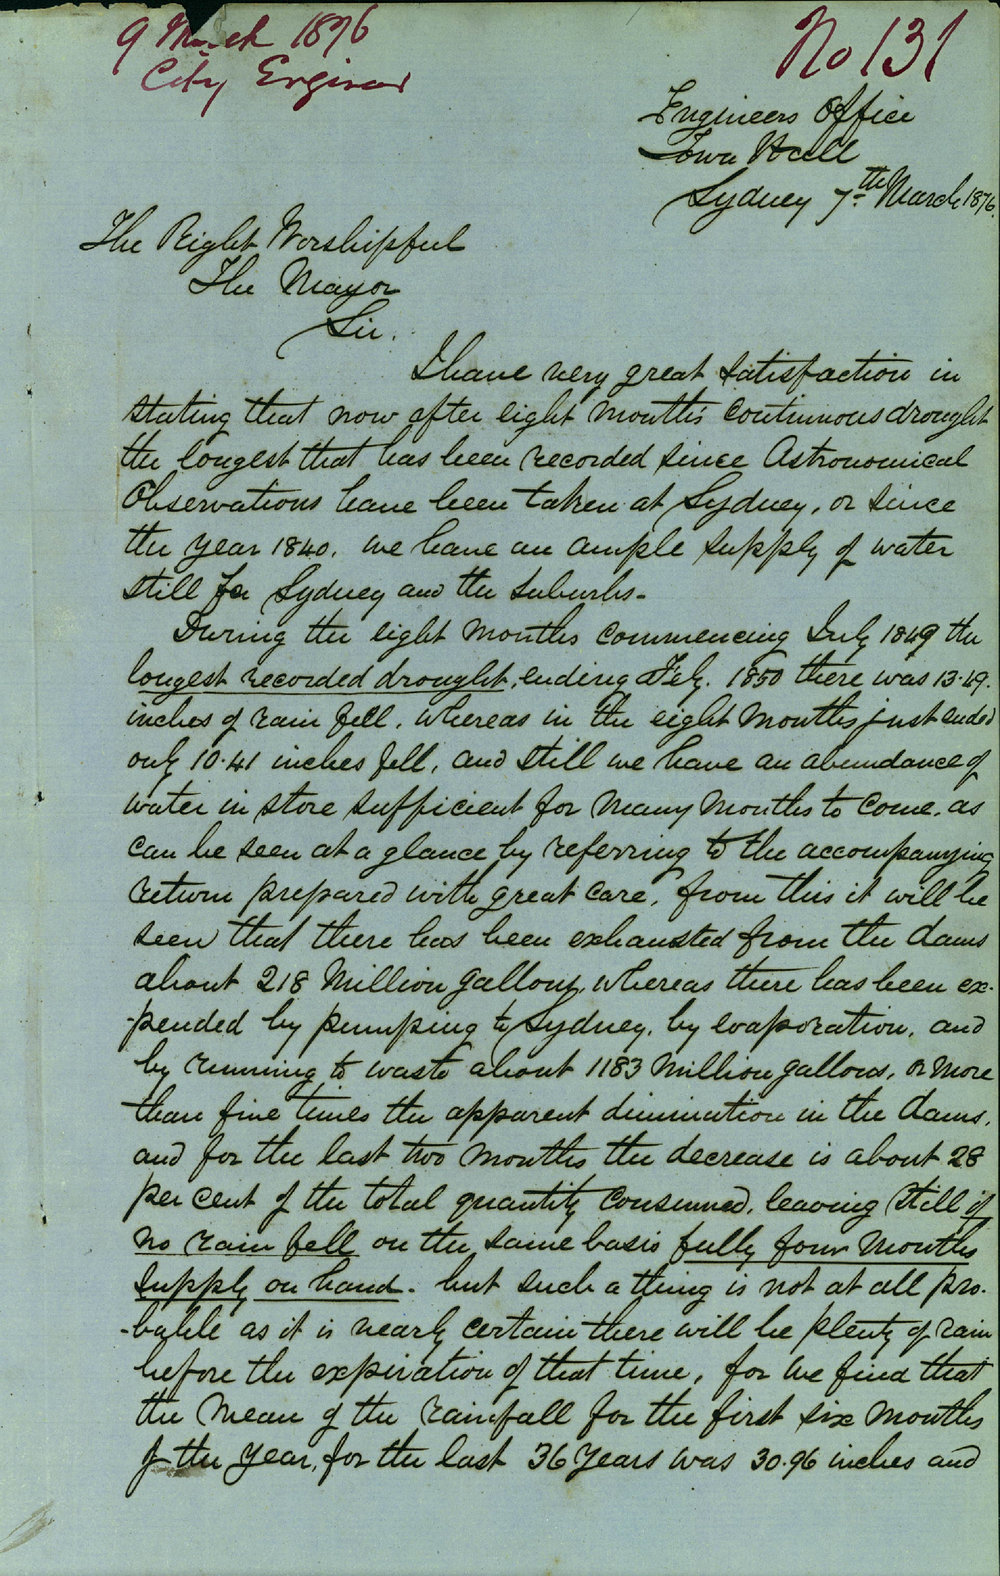 9 March 1876
City Engineer
No 131
Engineers Office
Town Hall
Sydney 7th March 1876.
The Right Worshipful
The Mayor
Sir.
I have very great satisfaction in
stating that now after eight months continuous drought
the longest that has been recorded since Astronomical
Observations have been taken at Sydney, or since
the year 1840. we have an ample supply of water
still for Sydney and the suburbs-
During the eight months commencing July 1849 the
longest recorded drought, ending Feby. 1850 there was 13.49.
inches of rain fell. whereas in the eight months just ended
only 10.41 inches fell, and still we have an abundance of
water in store sufficient for many months to come. as
can be seen at a glance by referring to the accompanying
return prepared with great care, from this it will be
seen that there has been exhausted from the dams
about 218 Million gallons, whereas there has been ex-
-pended by pumping to Sydney, by evaporation, and
by running to waste about 1183 Million gallons, or more
than five times the apparent diminution in the dams,
and for the last two months the decrease is about 28
per cent of the total quantity consumed, leaving still if
no rain fell on the same basis fully four months
supply on hand. but such a thing is not at all pro-
-bable as it is nearly certain there will be plenty of rain
before the expiration of that time, for we find that
the mean of the rainfall for the first six months
of the year, for the last 36 years was 30.96 inches and